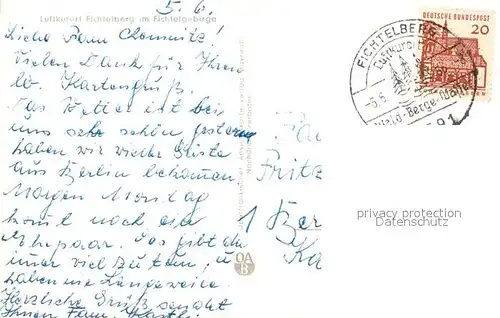 5.6.
Luftkurort Fichtelberg im Fichtelgebirge
Liebe Fam
Vielen Dank für Ihren
lb. Kartengruß.
Das Wetter ist bei
uns sehr schön, gestern
haben wir wieder Gäste
aus Berlin bekommen
Morgen Montag
kommt noch ein
Ehepaar. Da gibt da
immer viel zu tun, u
haben nie Langeweile.
Herzliche Grüße sendet
Ihnen Fam.
OA
B
Fritz
1 Ber
Ka
FICHTELBERG
Luftkurort
-6.6.
Wald-Berge-
DEUTSCHE BUNDESPOST
20
privacy protection
Datenschutz